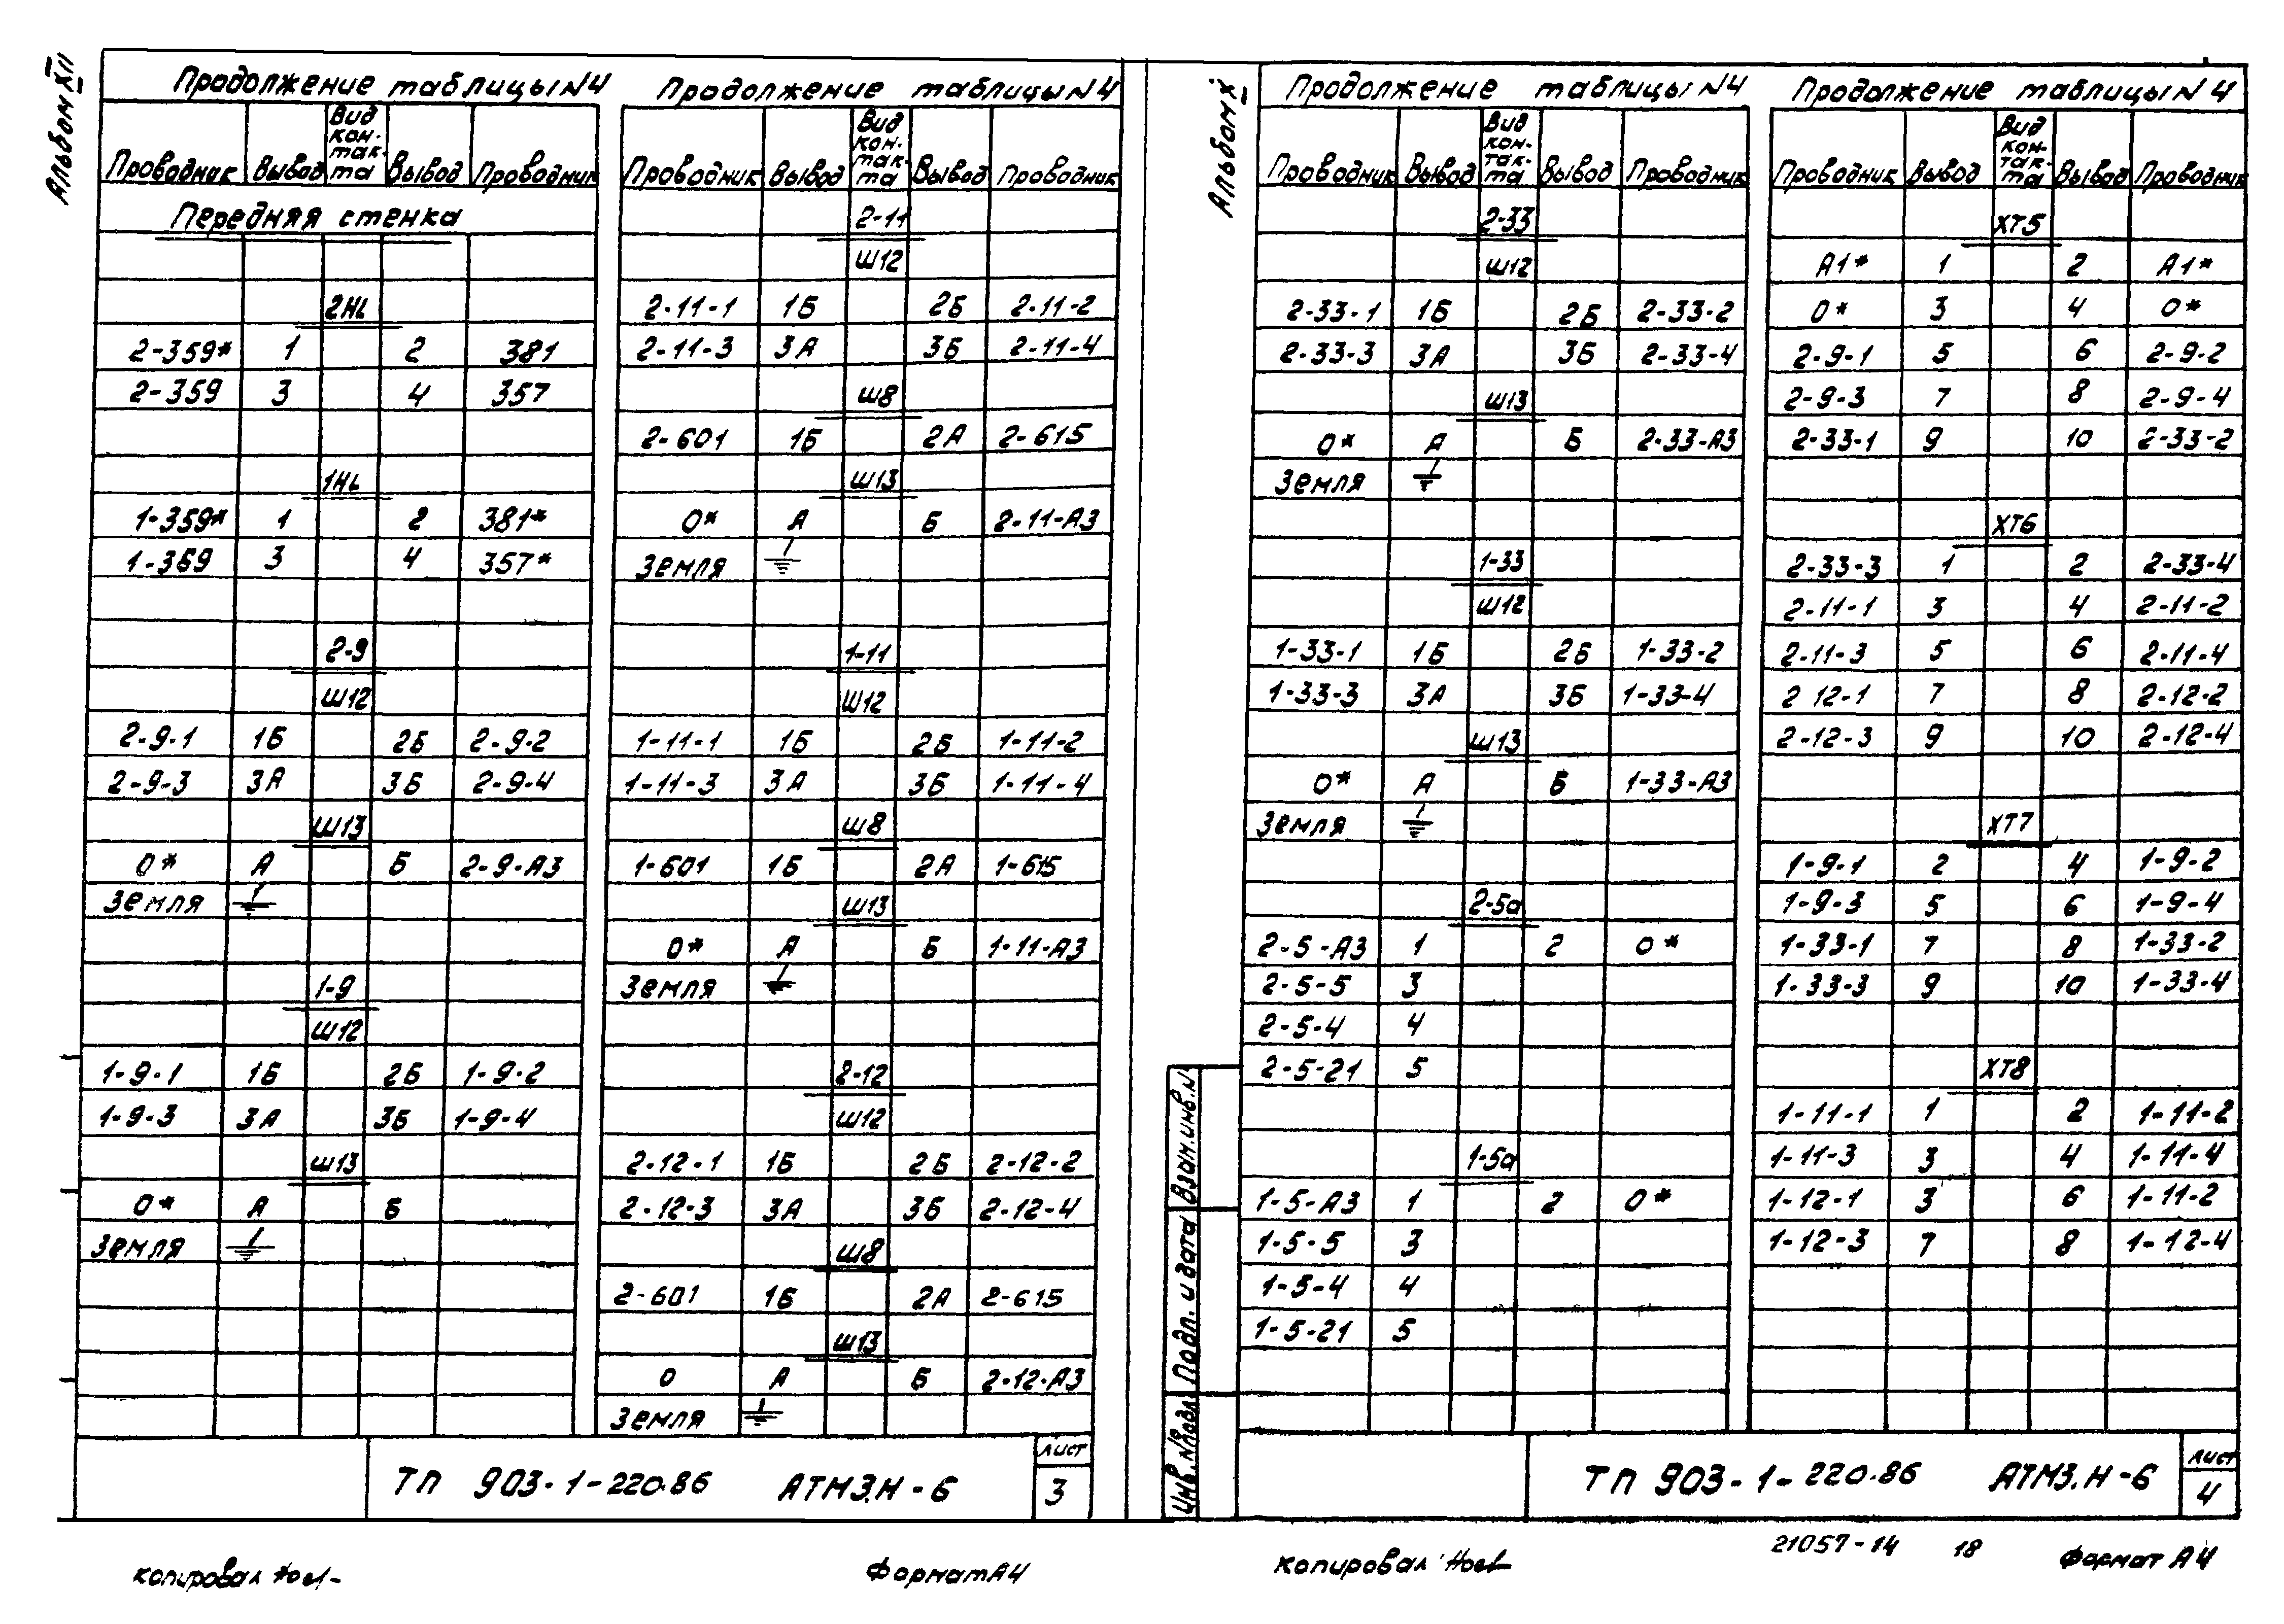 Альбом XII
Продолжение таблицы N4
Проводник Вывод Вид кон-так-та Вывод Проводник
Передняя стенка
2HL
2-359* 1 2 381
2-359 3 4 357
1HL
1-359* 1 2 381*
1-359 3 4 357*
2-9
Ш12
2-9-1 1Б 2Б 2-9-2
2-9-3 3А 3Б 2-9-4
Ш13
0* А Б 2-9-А3
Земля ⏚
1-9
Ш12
1-9-1 1Б 2Б 1-9-2
1-9-3 3А 3Б 1-9-4
Ш13
0* А Б
Земля ⏚
Продолжение таблицы N4
Проводник Вывод Вид кон-так-та Вывод Проводник
2-11
Ш12
2-11-1 1Б 2Б 2-11-2
2-11-3 3А 3Б 2-11-4
Ш8
2-601 1Б 2А 2-615
Ш13
0* А Б 2-11-А3
Земля ⏚
1-11
Ш12
1-11-1 1Б 2Б 1-11-2
1-11-3 3А 3Б 1-11-4
Ш8
1-601 1Б 2А 1-615
Ш13
0* А Б 1-11-А3
Земля ⏚
2-12
Ш12
2-12-1 1Б 2Б 2-12-2
2-12-3 3А 3Б 2-12-4
Ш8
2-601 1Б 2А 2-615
Ш13
0 А Б 2-12-А3
Земля ⏚
ТП 903-1-220.86 АТМ3.Н-6
лист
3
копировал
Формат А4
Альбом X
Продолжение таблицы N4
Проводник Вывод Вид кон-так-та Вывод Проводник
2-33
Ш12
2-33-1 1Б 2Б 2-33-2
2-33-3 3А 3Б 2-33-4
Ш13
0* А Б 2-33-А3
Земля ⏚
1-33
Ш12
1-33-1 1Б 2Б 1-33-2
1-33-3 3А 3Б 1-33-4
Ш13
0* А Б 1-33-А3
Земля ⏚
2-5а
2-5-А3 1 2 0*
2-5-5 3
2-5-4 4
2-5-21 5
1-5а
1-5-А3 1 2 0*
1-5-5 3
1-5-4 4
1-5-21 5
Продолжение таблицы N4
Проводник Вывод Вид кон-так-та Вывод Проводник
ХТ5
А1* 1 2 А1*
0* 3 4 0*
2-9-1 5 6 2-9-2
2-9-3 7 8 2-9-4
2-33-1 9 10 2-33-2
ХТ6
2-33-3 1 2 2-33-4
2-11-1 3 4 2-11-2
2-11-3 5 6 2-11-4
2 12-1 7 8 2-12-2
2-12-3 9 10 2-12-4
ХТ7
1-9-1 2 4 1-9-2
1-9-3 5 6 1-9-4
1-33-1 7 8 1-33-2
1-33-3 9 10 1-33-4
ХТ8
1-11-1 1 2 1-11-2
1-11-3 3 4 1-11-4
1-12-1 3 6 1-11-2
1-12-3 7 8 1-12-4
Взам.инв.N
Подп. и дата
Инв.N подл
ТП 903-1-220.86 АТМ3.Н-6
лист
4
копировал
21057-14 18
Формат А4